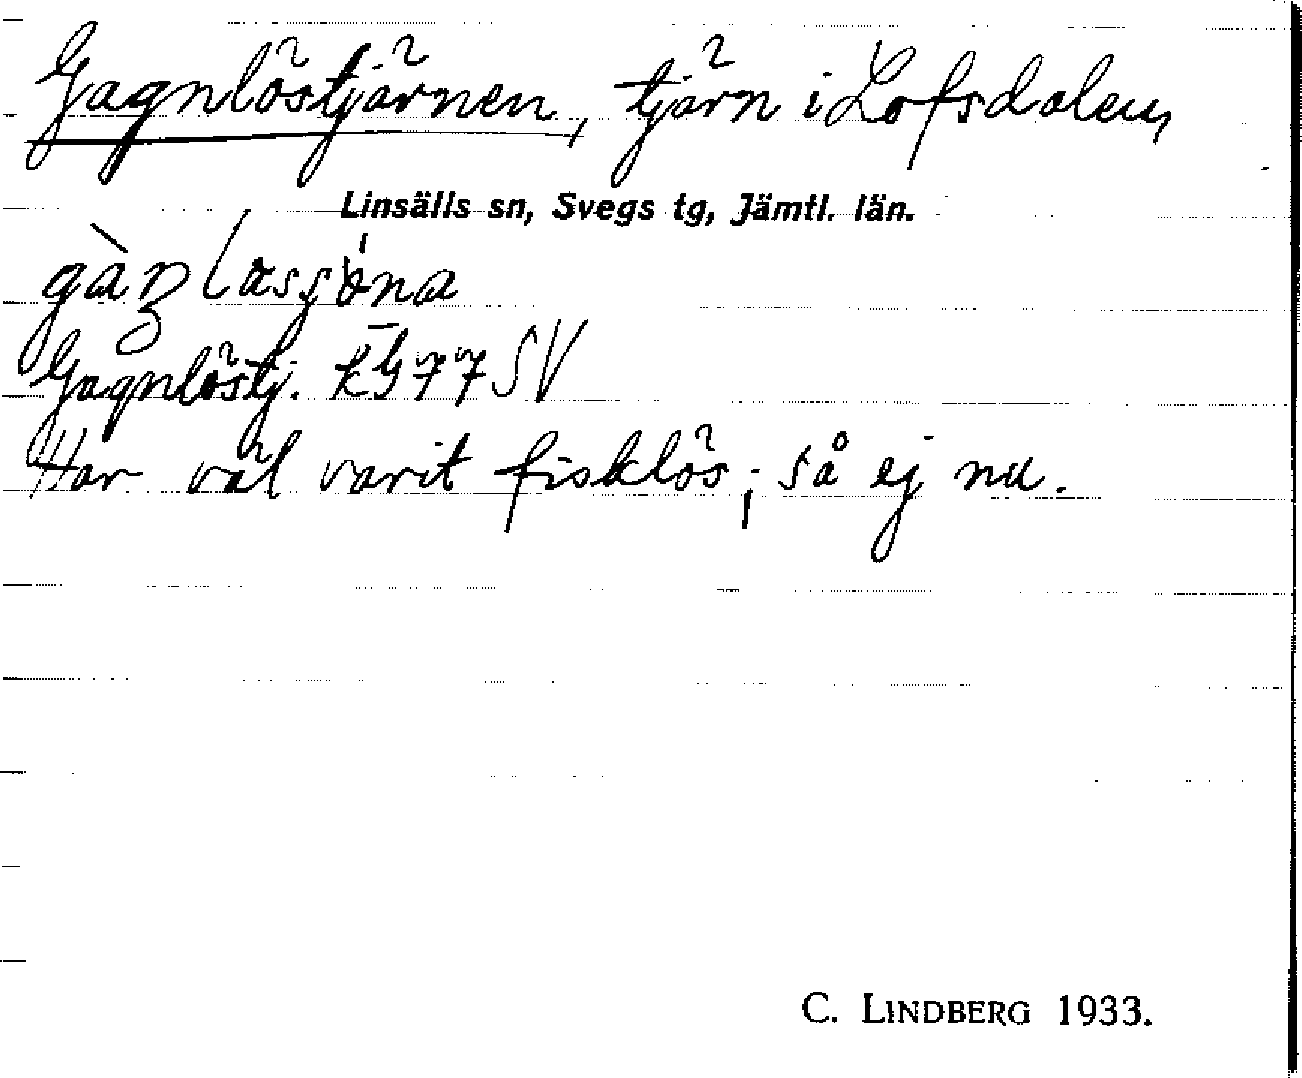 Gagnlöstjärnen, tjärn i Lofsdalen,
Linsälls sn, Svegs tg, Jämtl. län.
Gagnlöstj. KG 77 SV
Har väl varit fisklös; så ej nu.
C. LINDBERG 1933.